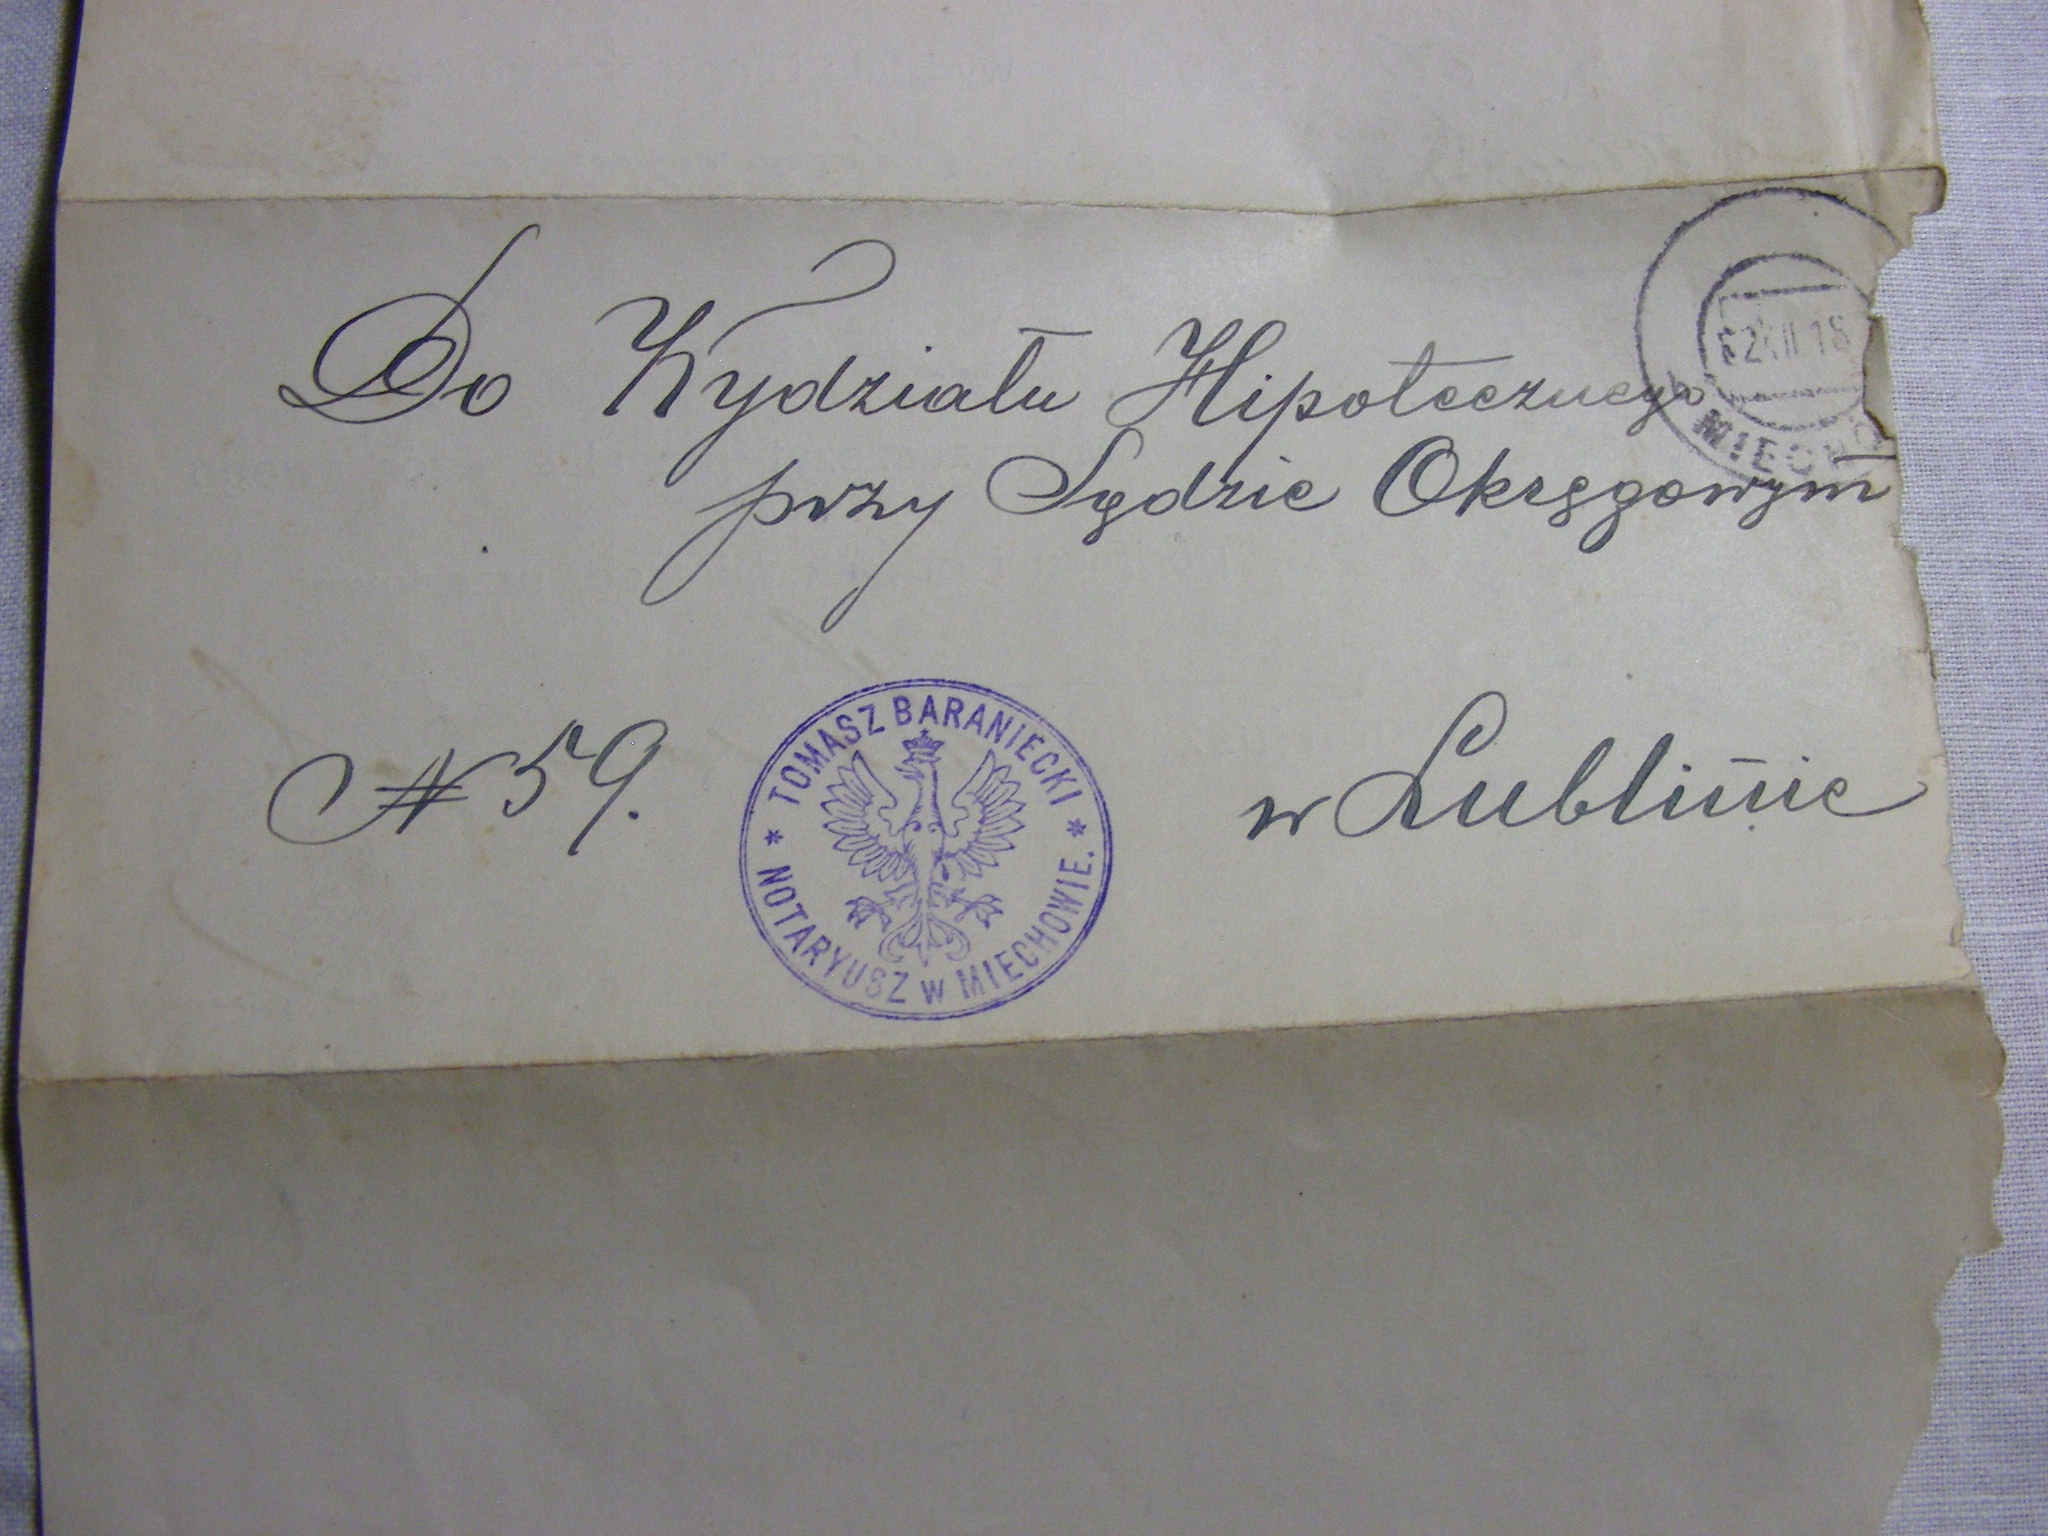 Do Wydziału Hipotecznego
przy Sądzie Okręgowym
№ 59.
w Lublinie
TOMASZ BARANIECKI
* NOTARYUSZ w MIECHOWIE. *
MIECHÓ